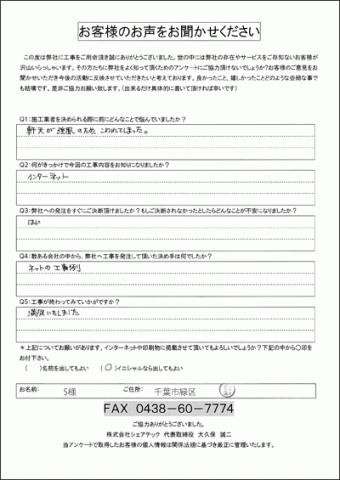 お客様のお声をお聞かせください
この度は弊社に工事をご用命頂き誠にありがとうございました。世の中には弊社の存在やサービスをご存知ないお客様が
沢山いらっしゃいます。その方たちに弊社をよく知って頂くためのアンケートにご協力頂けないでしょうか?お客様のご意見をお
聞かせいただき今後の活動に反映させていただきたいと考えております。良かったこと、嬉しかったことどのような些細な事で
も結構です。是非ご協力お願い致します。(出来るだけ具体的に書いて頂ければ幸いです)
Q1:施工業者を決められる際に前にどんなことで悩んでいましたか?
軒天が強風のため こわれてしまった。
Q2:何がきっかけで今回の工事内容をお知りになりましたか?
インターネット
Q3:弊社への発注をすぐにご決断頂けましたか?もしご決断されなかったとしたらどんなことが不安になりましたか?
はい
Q4:数ある会社の中から、弊社へ工事を発注して頂いた決め手は何でしたか?
ネットの工事例
Q5:工事が終わってみていかがですか?
満足いたしました
*上記についてお願いがあります。インターネットや印刷物に掲載させて頂いてもよろしいでしょうか?下記の中から○印を
お付下さい。
( )名前を出してもよい (○)イニシャルなら出してもよい
お名前: S様 ご住所: 千葉市緑区
FAX 0438-60-7774
ご協力ありがとうございました。
株式会社シェアテック 代表取締役 大久保 誠二
当アンケートで取得したお客様の個人情報は関係法規に基づき厳正に管理いたします。